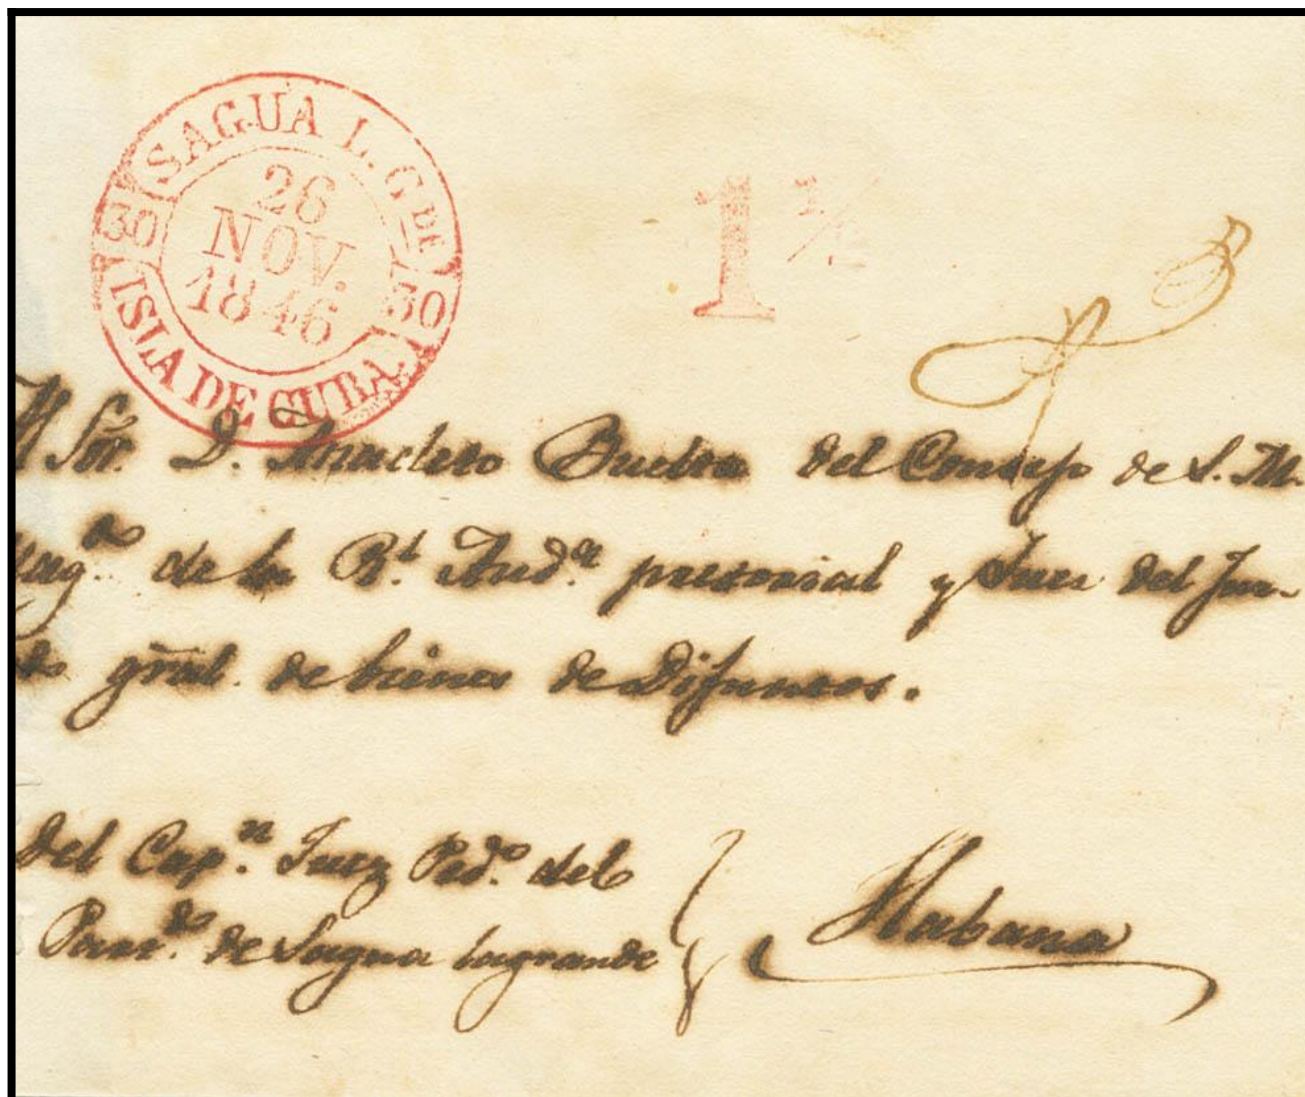 SAGUA L. G DE
30
26
NOV.
1846
30
ISLA DE CUBA.
1 1/2
Al Sōr. D. Anacleto Buelta del Consejo de S. M.
de la Rl. Auda. pretorial y Juez del Juz-
do gral. de bienes de Difuntos.
Del Capn. Juez Pedo. del
Partdo. de Sagua lagrande
Habana